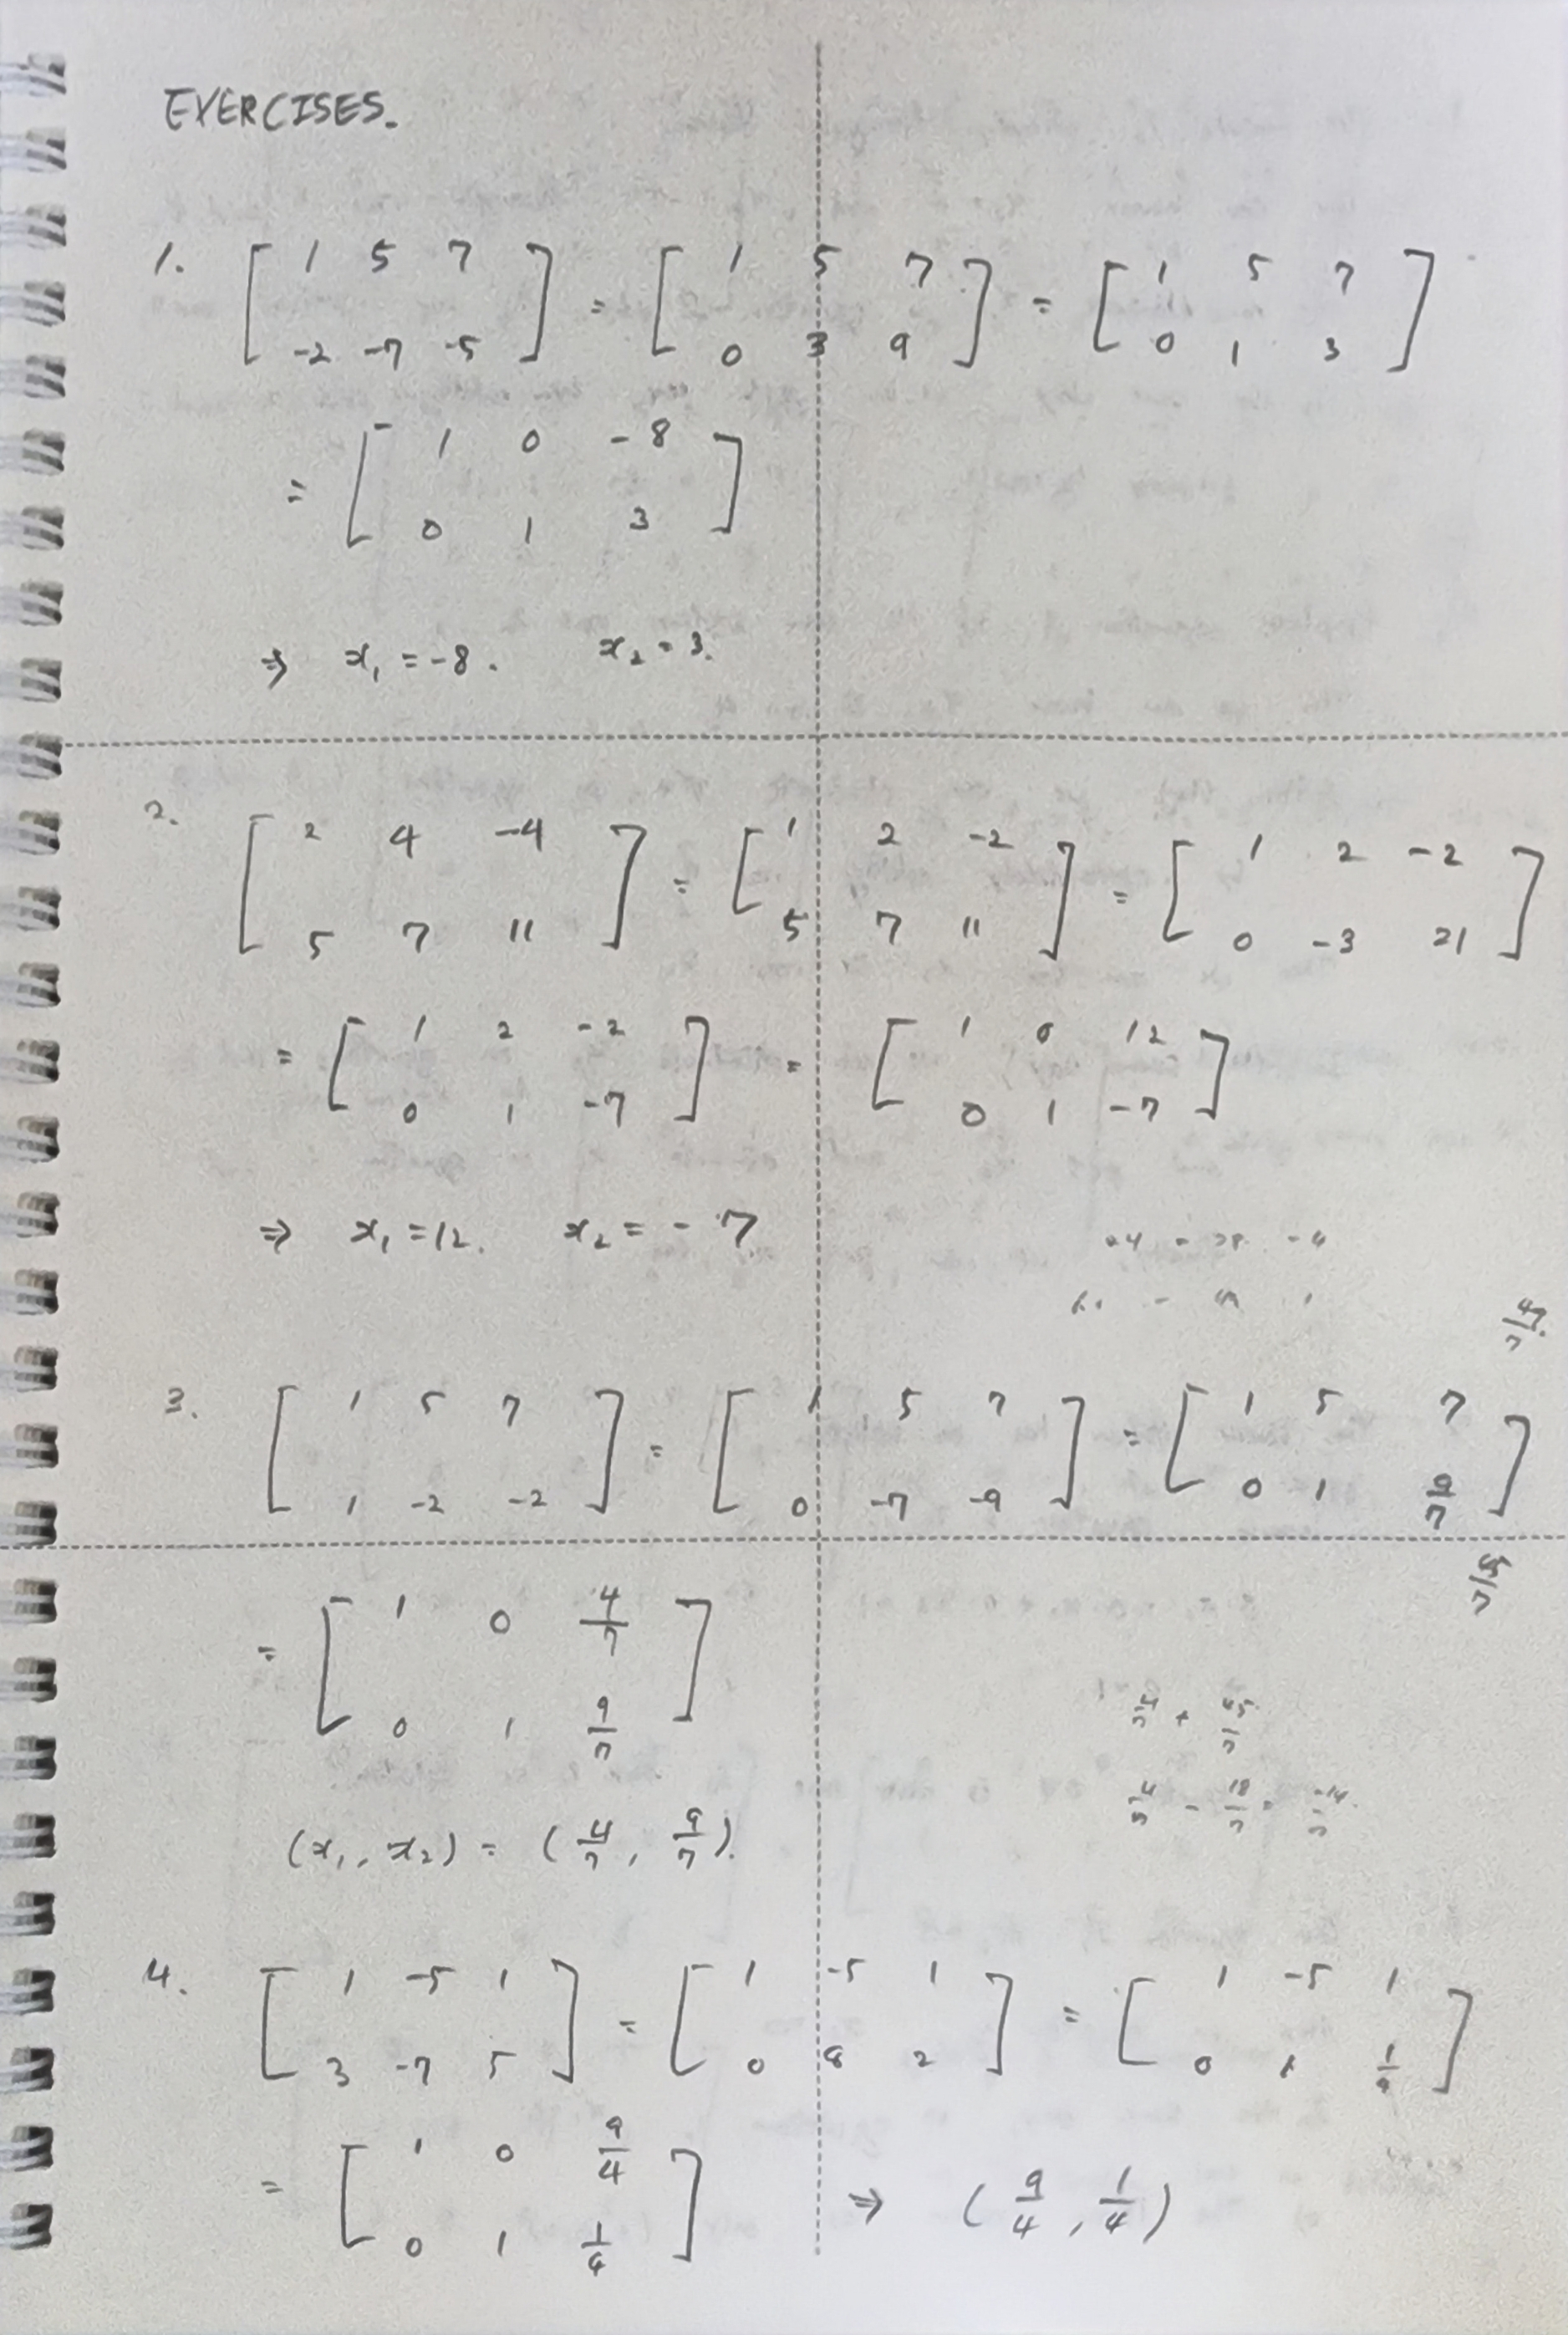 EXERCISES.
1. [ 1 5 7 ; -2 -7 -5 ] = [ 1 5 7 ; 0 3 9 ] = [ 1 5 7 ; 0 1 3 ]
= [ 1 0 -8 ; 0 1 3 ]
⇒ x₁ = -8. x₂ = 3.
2. [ 2 4 -4 ; 5 7 11 ] = [ 1 2 -2 ; 5 7 11 ] = [ 1 2 -2 ; 0 -3 21 ]
= [ 1 2 -2 ; 0 1 -7 ] = [ 1 0 12 ; 0 1 -7 ]
⇒ x₁ = 12. x₂ = -7
3. [ 1 5 7 ; 1 -2 -2 ] = [ 1 5 7 ; 0 -7 -9 ] = [ 1 5 7 ; 0 1 9/7 ]
= [ 1 0 4/7 ; 0 1 9/7 ]
(x₁, x₂) = (4/7, 9/7).
4. [ 1 -5 1 ; 3 -7 5 ] = [ 1 -5 1 ; 0 8 2 ] = [ 1 -5 1 ; 0 1 1/4 ]
= [ 1 0 9/4 ; 0 1 1/4 ] ⇒ (9/4, 1/4)